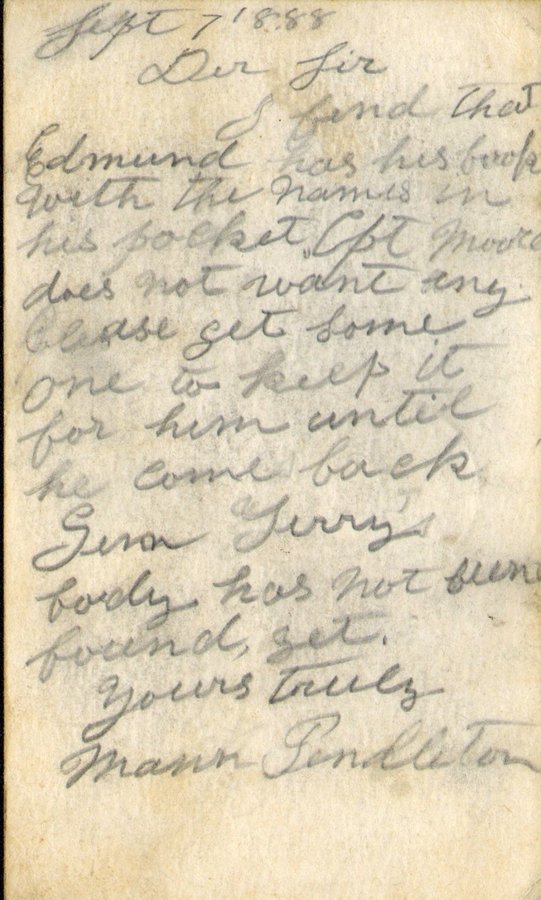 Sept 7 1888
Der Sir
I find that
Edmund has his book
with the names in
his pocket, Cpt Moore
does not want any
Please get some
one to keep it
for him until
he come back
Genn Terry's
body has not been
found, yet.
Yours truly
Mann Pendleton